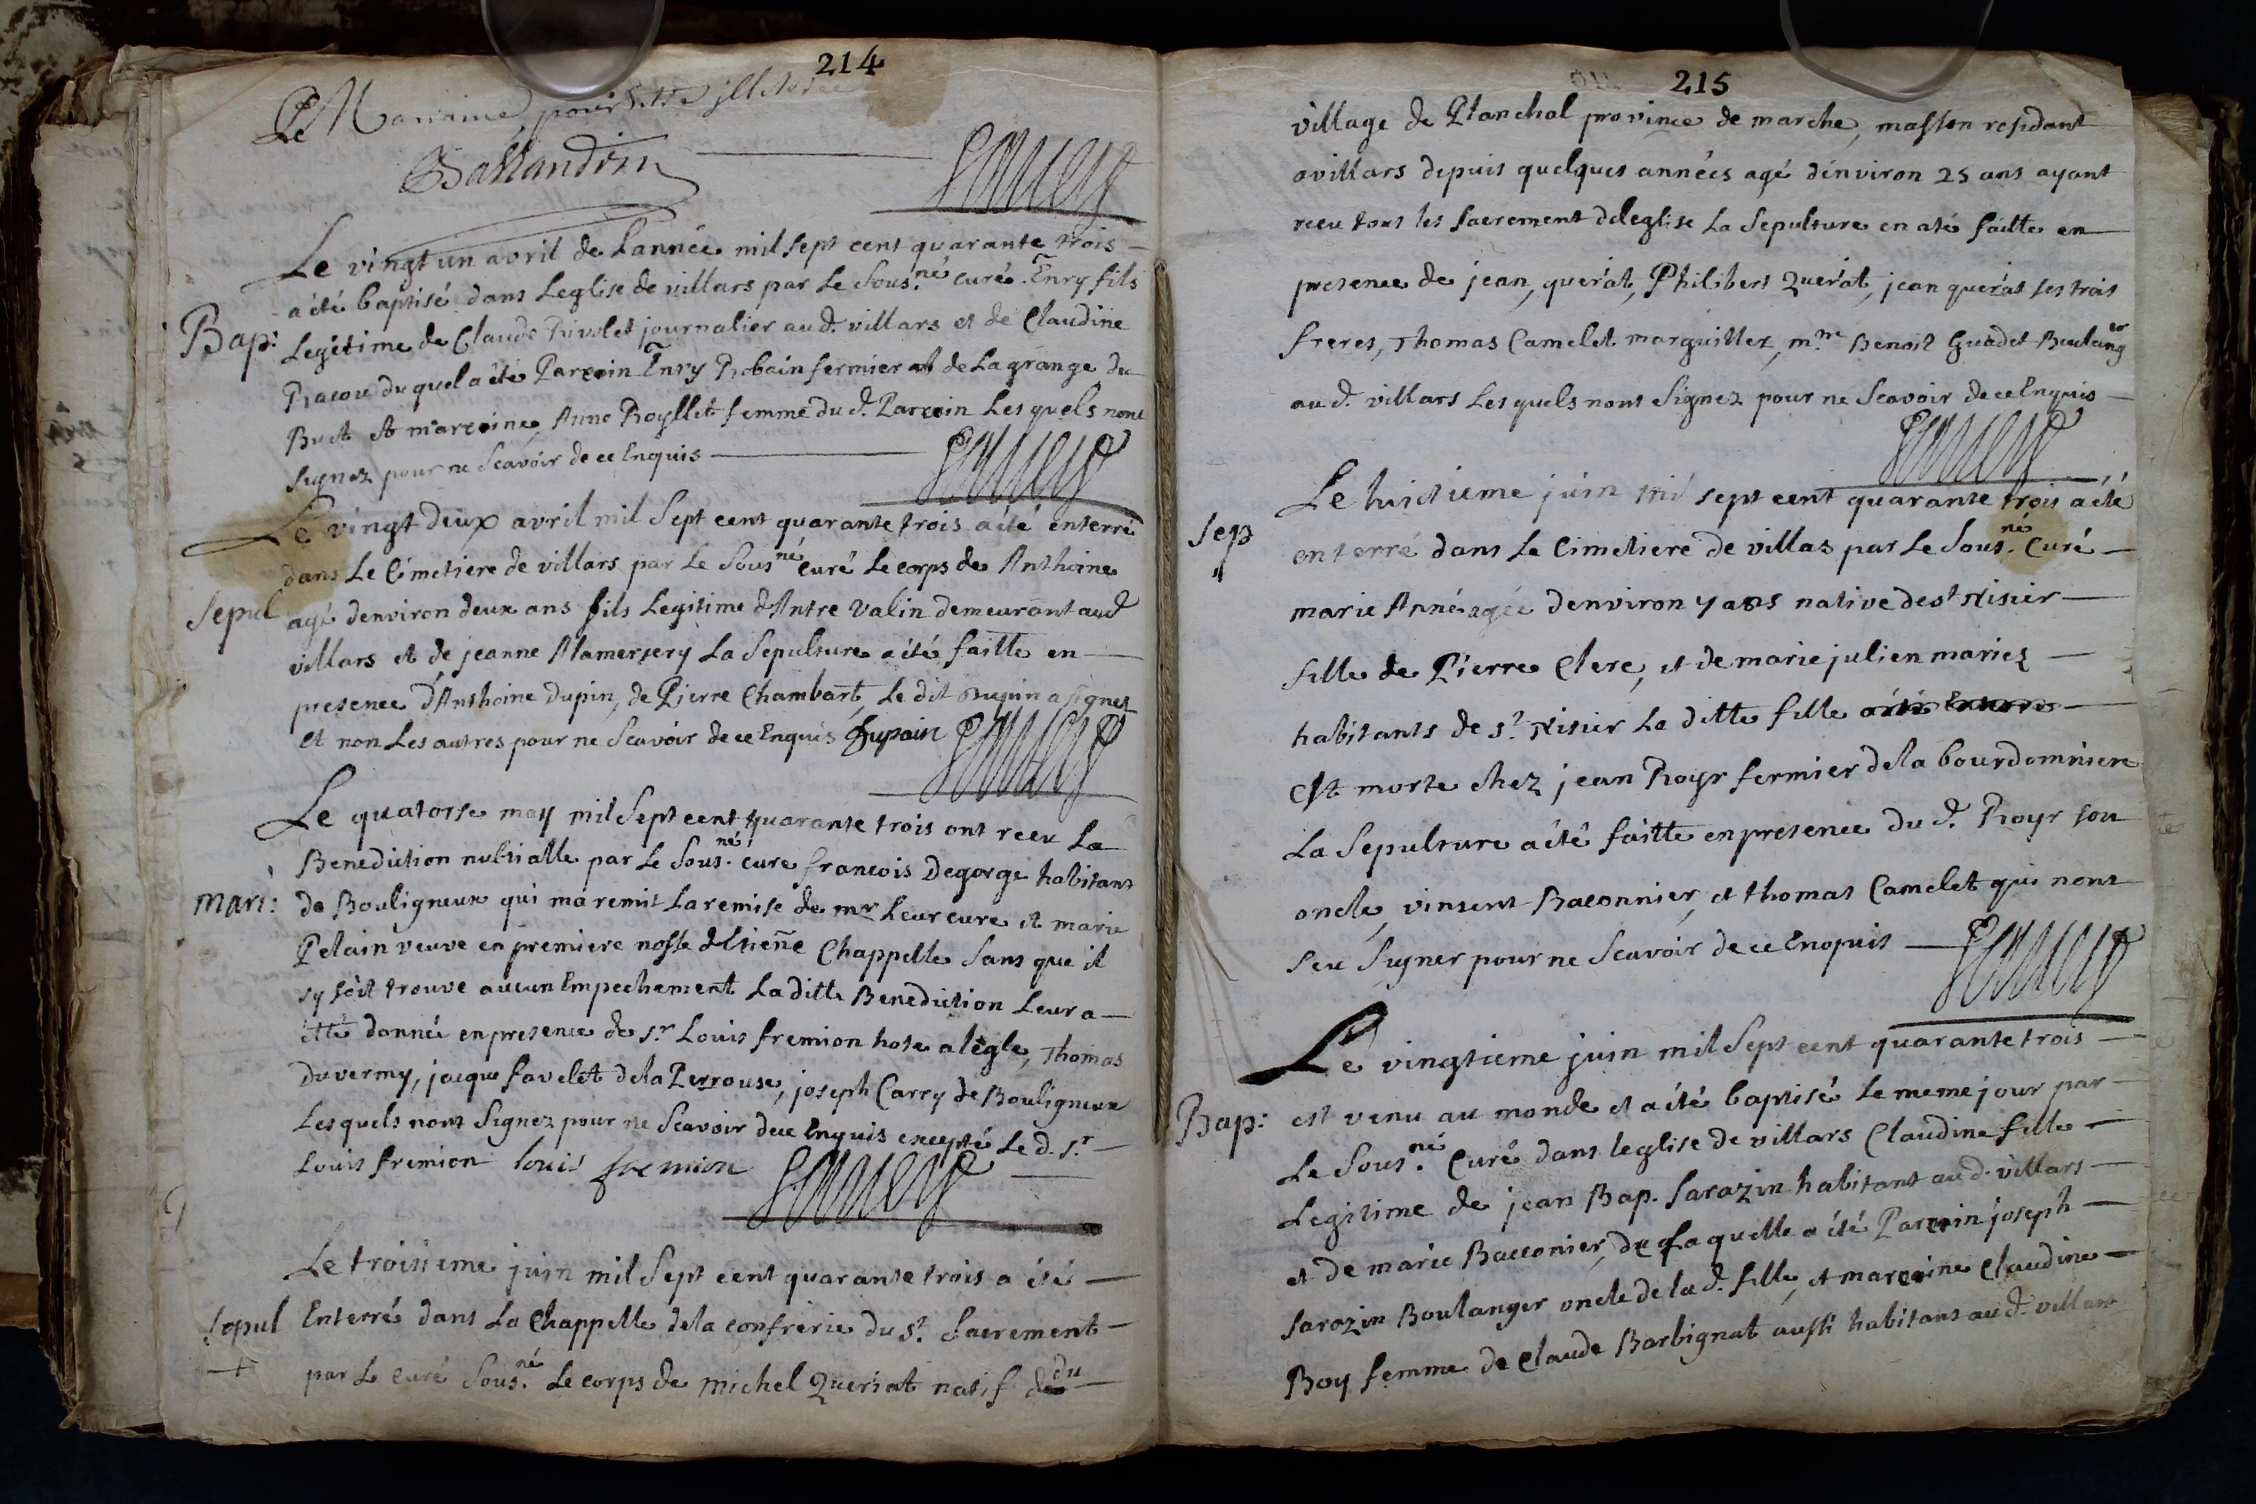 214
Le Marraine pour être illeterée
Ballandrin
Le vingt un avril de Lannée mil sept cent quarante trois
a été baptisé dans Leglise de villars par Le Sous.né curé Enry fils
Bap: Legitime de Claude Rivolet journalier aud. villars et de Claudine
Racou du quel a été Parrein Enry Robain fermier de Lagrange du
Buet et marreine Anne Royllet femme du d. Parrein Les quels nont
signez pour ne Scavoir de ce Enquis
Le vingt deux avril mil Sept cent quarante trois a été enterré
dans Le Cimetiere de villars par Le Sous.né curé Le corps de Anthoine
Sepul agé denviron deux ans fils Legitime dAntre Valin demeurant aud
villars et de jeanne Mamersery La Sepulture a été faitte en
presence d'Anthoine Dupin, de Pierre Chambart, Le dit Dupin a signez
et non Les autres pour ne Scavoir de ce Enquis Dupain
Le quatorse may mil Sept cent quarante trois ont receu La
Benediction nubtialle par Le Sous.né cure francois Degorge habitant
Mari: de Bouligneux qui ma remit La remise de mr Leur cure et marie
Pelain veuve en premiere nosse dEtieñe Chappelle Sans que il
sy soit trouve aucun Empechement La ditte Benediction Leur a
été donnée en presence de sr Louis fremion hote a legle, Thomas
Duvermy, jacque favelet dela Perrouse, joseph Carry de Bouligneux
Lesquels nont Signez pour ne Scavoir de ce Enquis excepté Le d. sr
Louis fremion louis fremion
Le troisieme juin mil Sept cent quarante trois a été
Sepul Enterré dans La Chappelle dela confrerie du st. Sacrement
par Le curé Sous.né Le corps de Michel Queriat natif du
215
village de Planchal province de marche, masson residant
a villars depuis quelques années agé d'environ 25 ans ayant
receu tous les sacrement deleglise La Sepulture en a té faitte en
presence de jean, querat, Philibert Querat, jean querat ses trois
freres, Thomas Camelet marguiller, m.re Benoit Guadet Boulanger
au d. villars Lesquels nont Signez pour ne Scavoir de ce Enquis
Le huictieme juin mil sept cent quarante trois a été
Sep enterré dans Le Cimetiere de villas par Le Sous.né Curé
marie Anne agée denviron 7 ans native de st Nisier
fille de Pierre Clerc, et de marie julien mariez
habitants de st. Nisier La ditte fille
est morte chez jean Royr fermier dela bourdonniere
La Sepulture a été faitte en presence du d. Royr son
oncle, vinsent Baconnier, et thomas Camelet qui nont
seu Signer pour ne Scavoir de ce Enquis
Le vingtieme juin mil Sept cent quarante trois
Bap: est venu au monde et a été baptisé Le meme jour par
Le Sous.né Curé dans leglise de villars Claudine fille
Legitime de jean Bap. Sarazin habitant aud. villars
et de marie Bacconier, de Laquelle a été Parrein joseph
Sarazin Boulanger oncle de lad. fille, et marreine Claudine
Roy femme de Claude Barbignat aussi habitans aud. villars